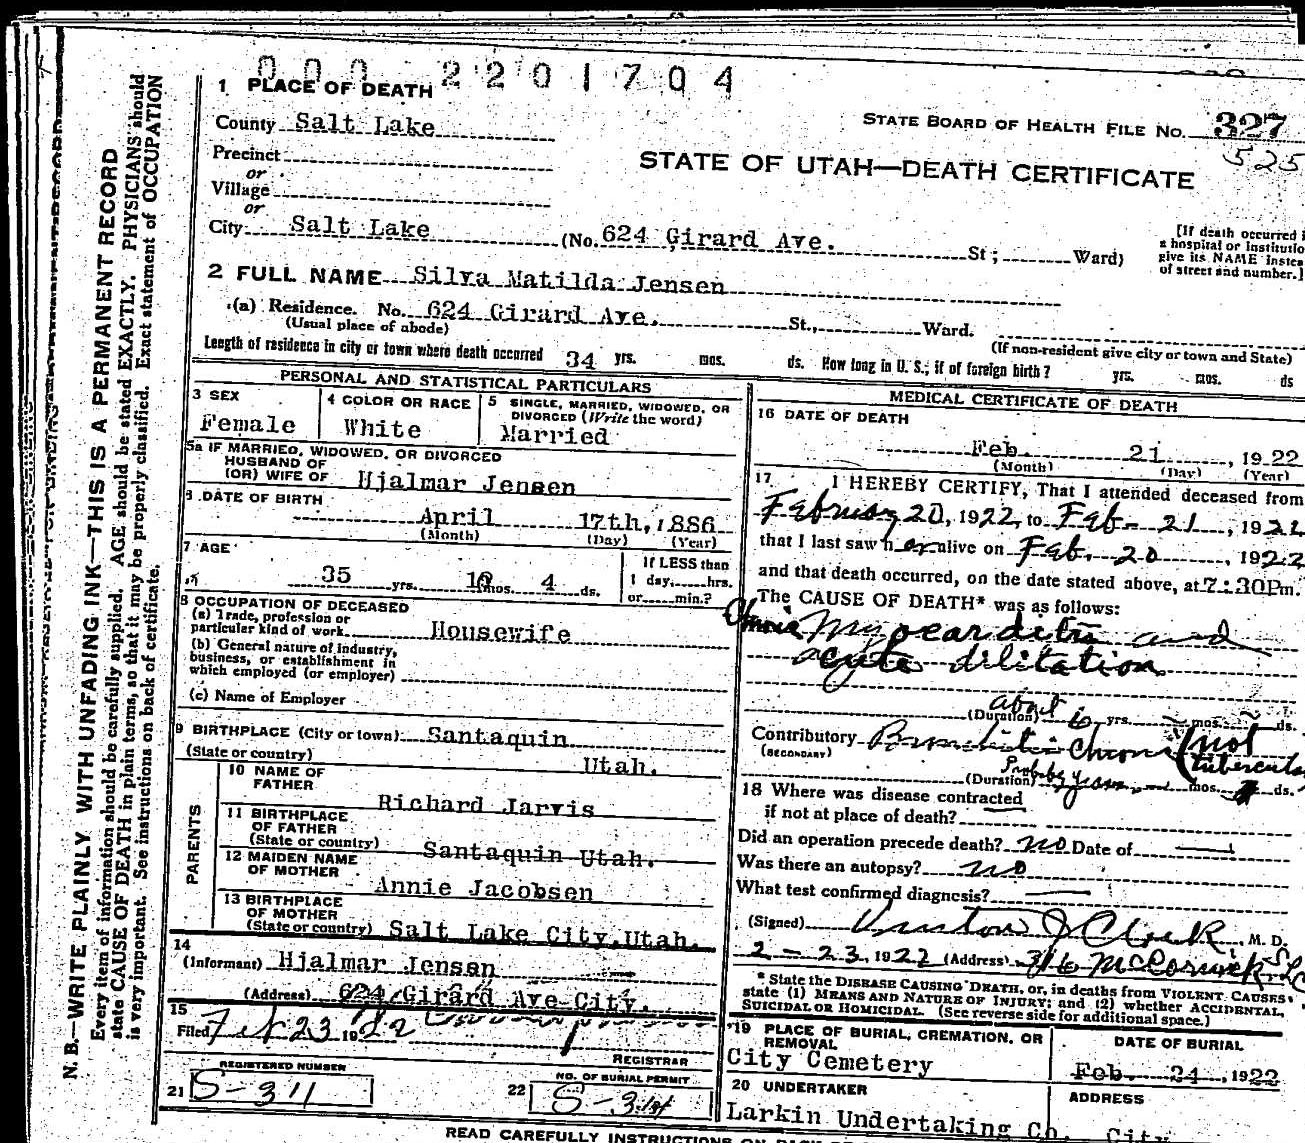 000 2201704
1 PLACE OF DEATH
County Salt Lake
STATE BOARD OF HEALTH FILE NO. 327
525
Precinct
or
Village
or
City Salt Lake (No. 624 Girard Ave. St; Ward)
STATE OF UTAH—DEATH CERTIFICATE
[If death occurred i
a hospital or institutio
give its NAME instea
of street and number.]
2 FULL NAME Silva Matilda Jensen
(a) Residence. No. 624 Girard Ave. St., Ward.
(Usual place of abode)
(If non-resident give city or town and State)
Length of residence in city or town where death occurred 34 yrs. mos. ds. How long in U. S.; if of foreign birth? yrs. mos. ds
PERSONAL AND STATISTICAL PARTICULARS
3 SEX
Female
4 COLOR OR RACE
White
5 SINGLE, MARRIED, WIDOWED, OR
DIVORCED (Write the word)
Married
5a IF MARRIED, WIDOWED, OR DIVORCED
HUSBAND OF
(OR) WIFE OF Hjalmar Jensen
DATE OF BIRTH
April 17th, 1886
(Month) (Day) (Year)
7 AGE
35 yrs. 10 mos. 4 ds.
If LESS than
1 day, hrs.
or min.?
8 OCCUPATION OF DECEASED
(a) Trade, profession or
particular kind of work Housewife
(b) General nature of industry,
business, or establishment in
which employed (or employer)
(c) Name of Employer
9 BIRTHPLACE (City or town) Santaquin
(State or country) Utah.
PARENTS
10 NAME OF
FATHER Richard Jarvis
11 BIRTHPLACE
OF FATHER
(State or country) Santaquin Utah.
12 MAIDEN NAME
OF MOTHER Annie Jacobsen
13 BIRTHPLACE
OF MOTHER
(State or country) Salt Lake City, Utah.
14
(Informant) Hjalmar Jensen
(Address) 624 Girard Ave City.
15
Filed Feb 23 1922
REGISTRAR
REGISTERED NUMBER
21 S-311
NO. OF BURIAL PERMIT
22
MEDICAL CERTIFICATE OF DEATH
16 DATE OF DEATH
Feb. 21, 1922
(Month) (Day) (Year)
17 I HEREBY CERTIFY, That I attended deceased from
February 20, 1922, to Feb- 21, 192
that I last saw her alive on Feb. 20 1922
and that death occurred, on the date stated above, at 7:30Pm.
The CAUSE OF DEATH* was as follows:
Chronic Myocarditis and
acute dilitation
(Duration) about 6 yrs. mos. ds.
Contributory Bronchitis Chronic (not
(SECONDARY) tubercula
(Duration) Probably years mos. ds.
18 Where was disease contracted
if not at place of death?
Did an operation precede death? no Date of
Was there an autopsy? no
What test confirmed diagnosis?
(Signed) Clark, M. D.
2-23, 1922 (Address) 316 McCornick SLC
* State the DISEASE CAUSING DEATH, or, in deaths from VIOLENT CAUSES,
state (1) MEANS AND NATURE OF INJURY; and (2) whether ACCIDENTAL,
SUICIDAL OR HOMICIDAL. (See reverse side for additional space.)
19 PLACE OF BURIAL, CREMATION, OR
REMOVAL
City Cemetery
DATE OF BURIAL
Feb. 24, 1922
20 UNDERTAKER
Larkin Undertaking Co.
ADDRESS
City
READ CAREFULLY INSTRUCTIONS ON BACK OF
N. B.—WRITE PLAINLY WITH UNFADING INK—THIS IS A PERMANENT RECORD
Every item of information should be carefully supplied. AGE should be stated EXACTLY. PHYSICIANS should
state CAUSE OF DEATH in plain terms, so that it may be properly classified. Exact statement of OCCUPATION
is very important. See instructions on back of certificate.